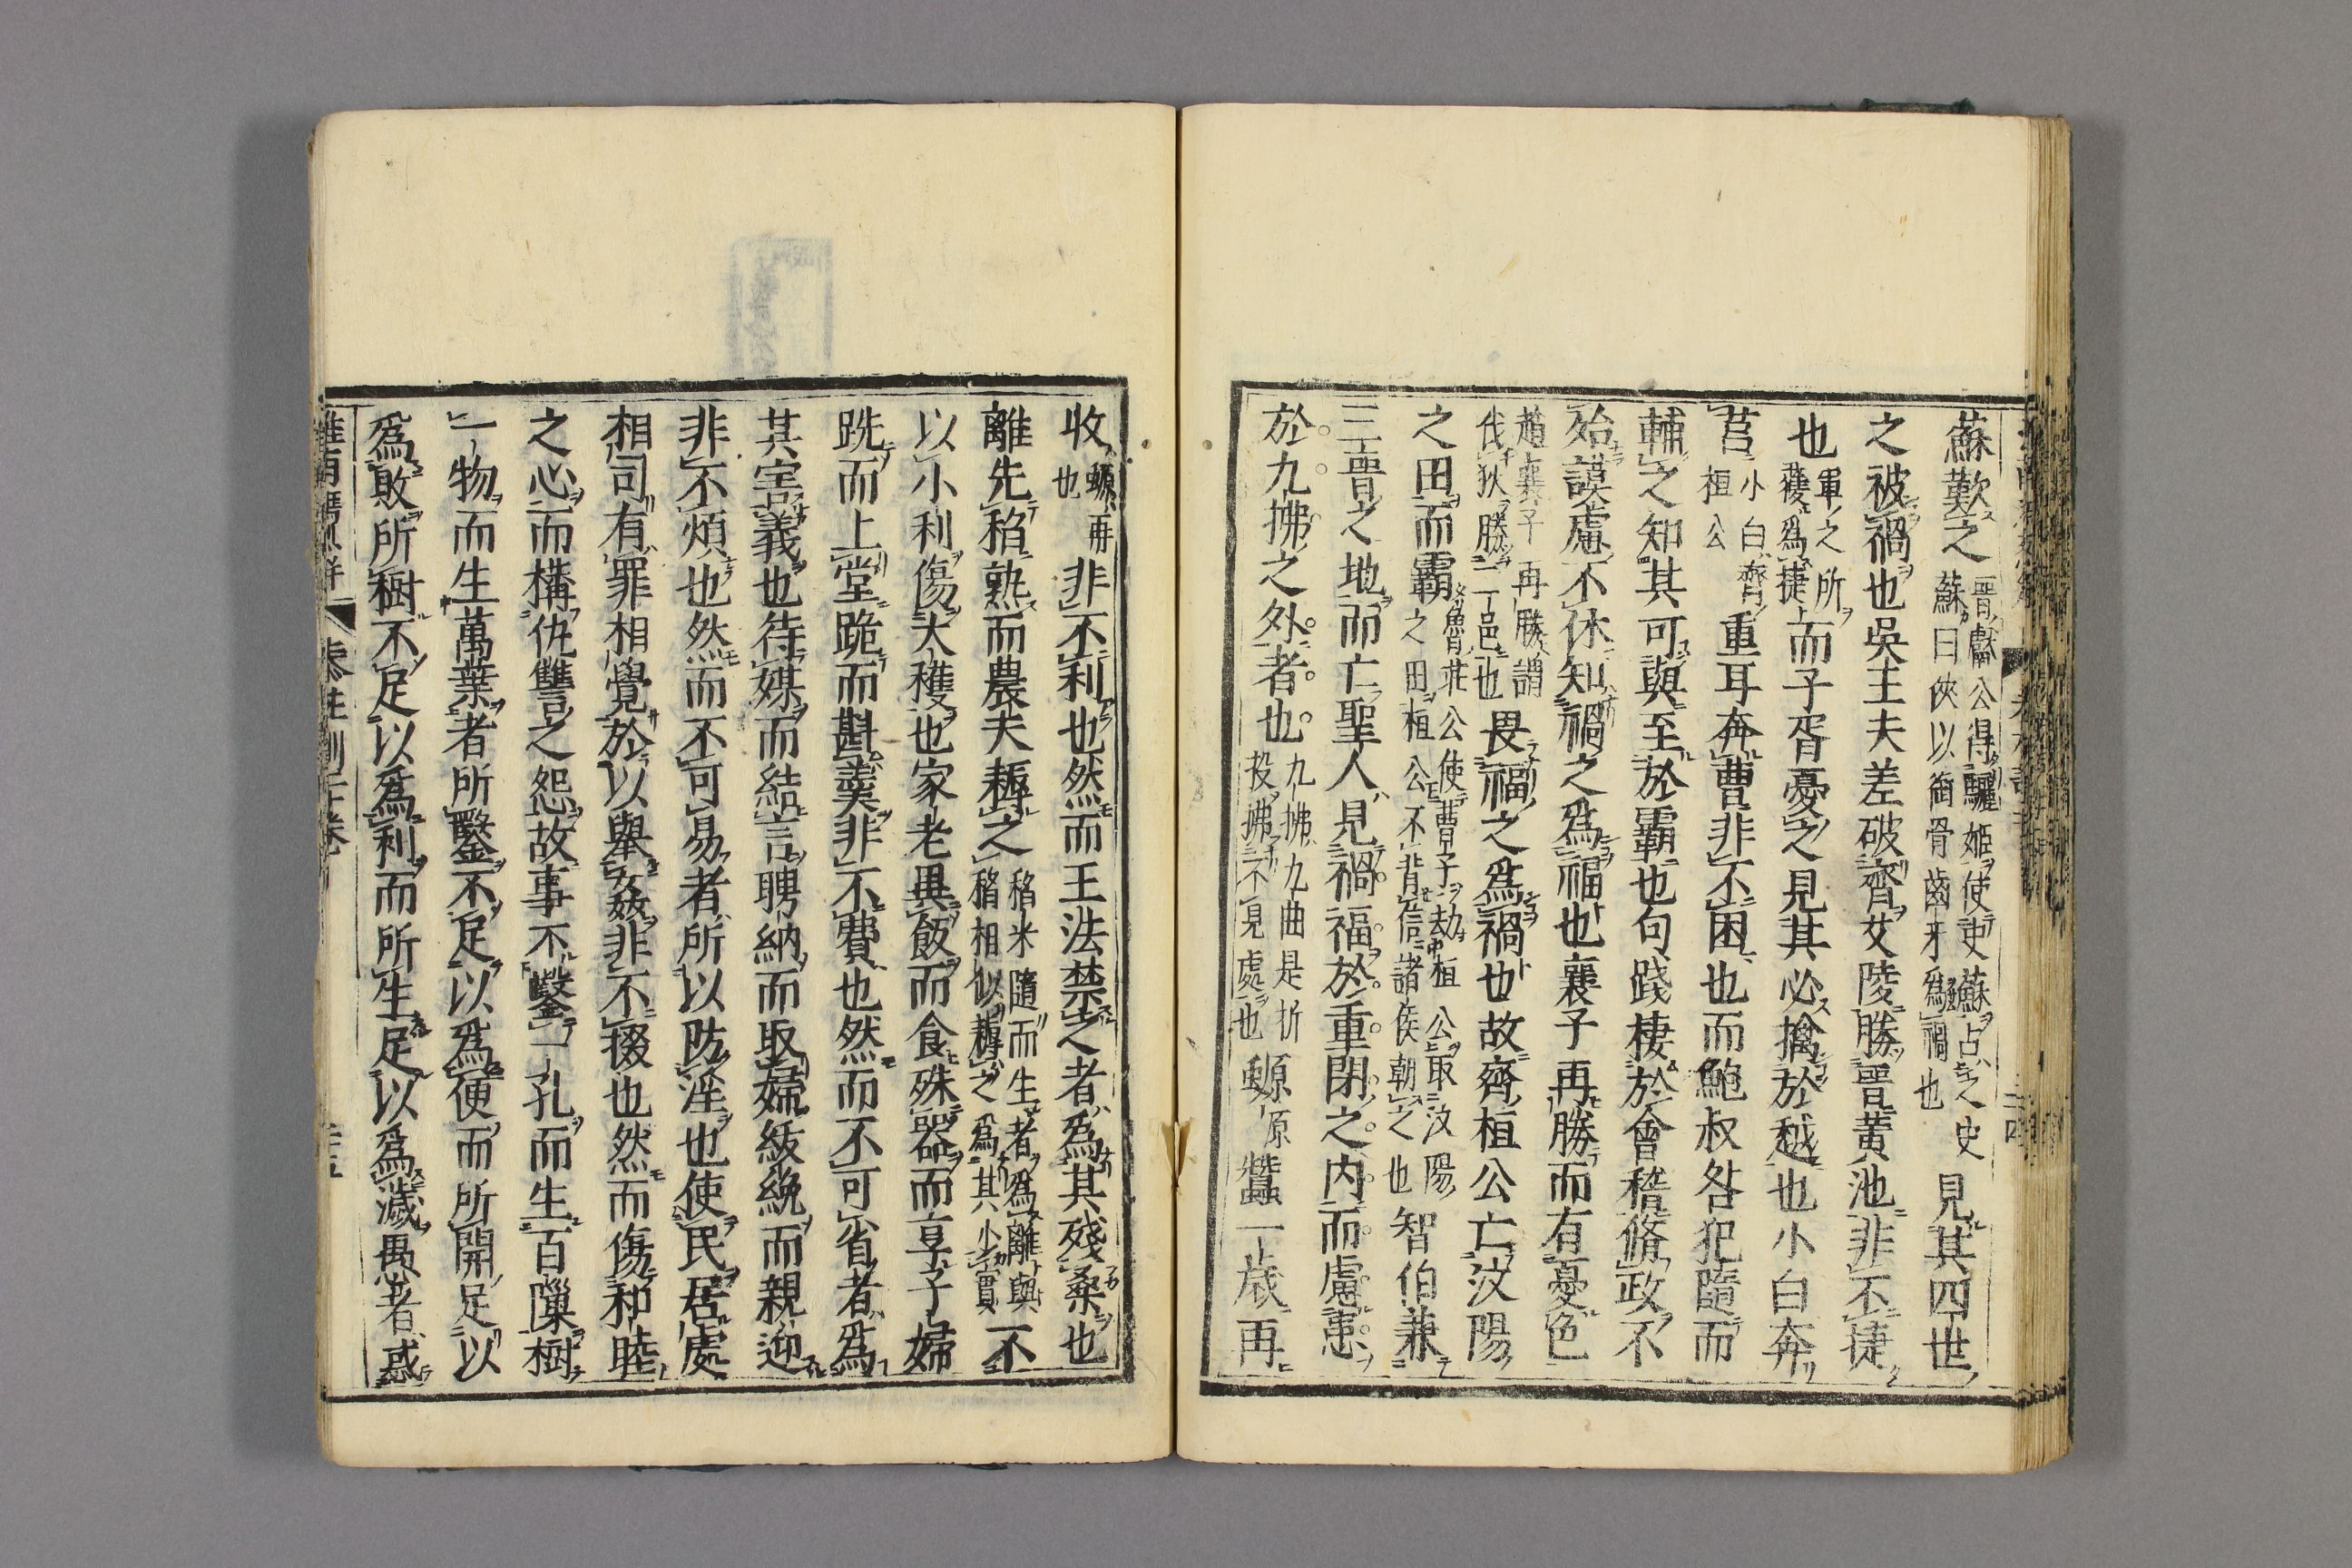 蘇歎之晉獻公得驪姬使史蘇占之史蘇曰俠以銜骨齒牙爲禍也見其四世
之被禍也吳王夫差破齊艾陵勝晉黃池非不捷
也軍之所獲爲捷而子胥憂之見其必擒於越也小白奔
莒小白齊桓公重耳奔曹非不困也而鮑叔咎犯隨而
輔之知其可與至於霸也句踐棲於會稽脩政不
殆謨慮不休知禍之爲福也襄子再勝而有憂色
趙襄子再勝謂伐狄勝二邑也畏福之爲禍也故齊桓公亡汶陽
之田而霸魯莊公使曹子劫桓公取汶陽之田桓公不背信諸侯朝之也智伯兼
三晉之地而亡聖人見禍福於重閉之内而慮患
於九拂之外者也九拂九曲是折投拂不見處也螈原蠶一歳再
收螈再也非不利也然而王法禁之者爲其殘桑也
離先稻熟而農夫耨之稻米隨而生者爲離與稻相似耨之爲其少實不
以小利傷大穫也家老異飯而食殊器而享子婦
跣而上堂跪而斟羹非不費也然而不可省者爲
其害義也待媒而結言聘納而取婦紱絻而親迎
非不煩也然而不可易者所以防淫也使民居處
相司有罪相覺於以舉姦非不掇也然而傷和睦
之心而構仇讐之怨故事不鑿一孔而生百隟樹
一物而生萬葉者所鑿不足以爲便而所開足以
爲敗所樹不足以爲利而所生足以爲濊愚者惑